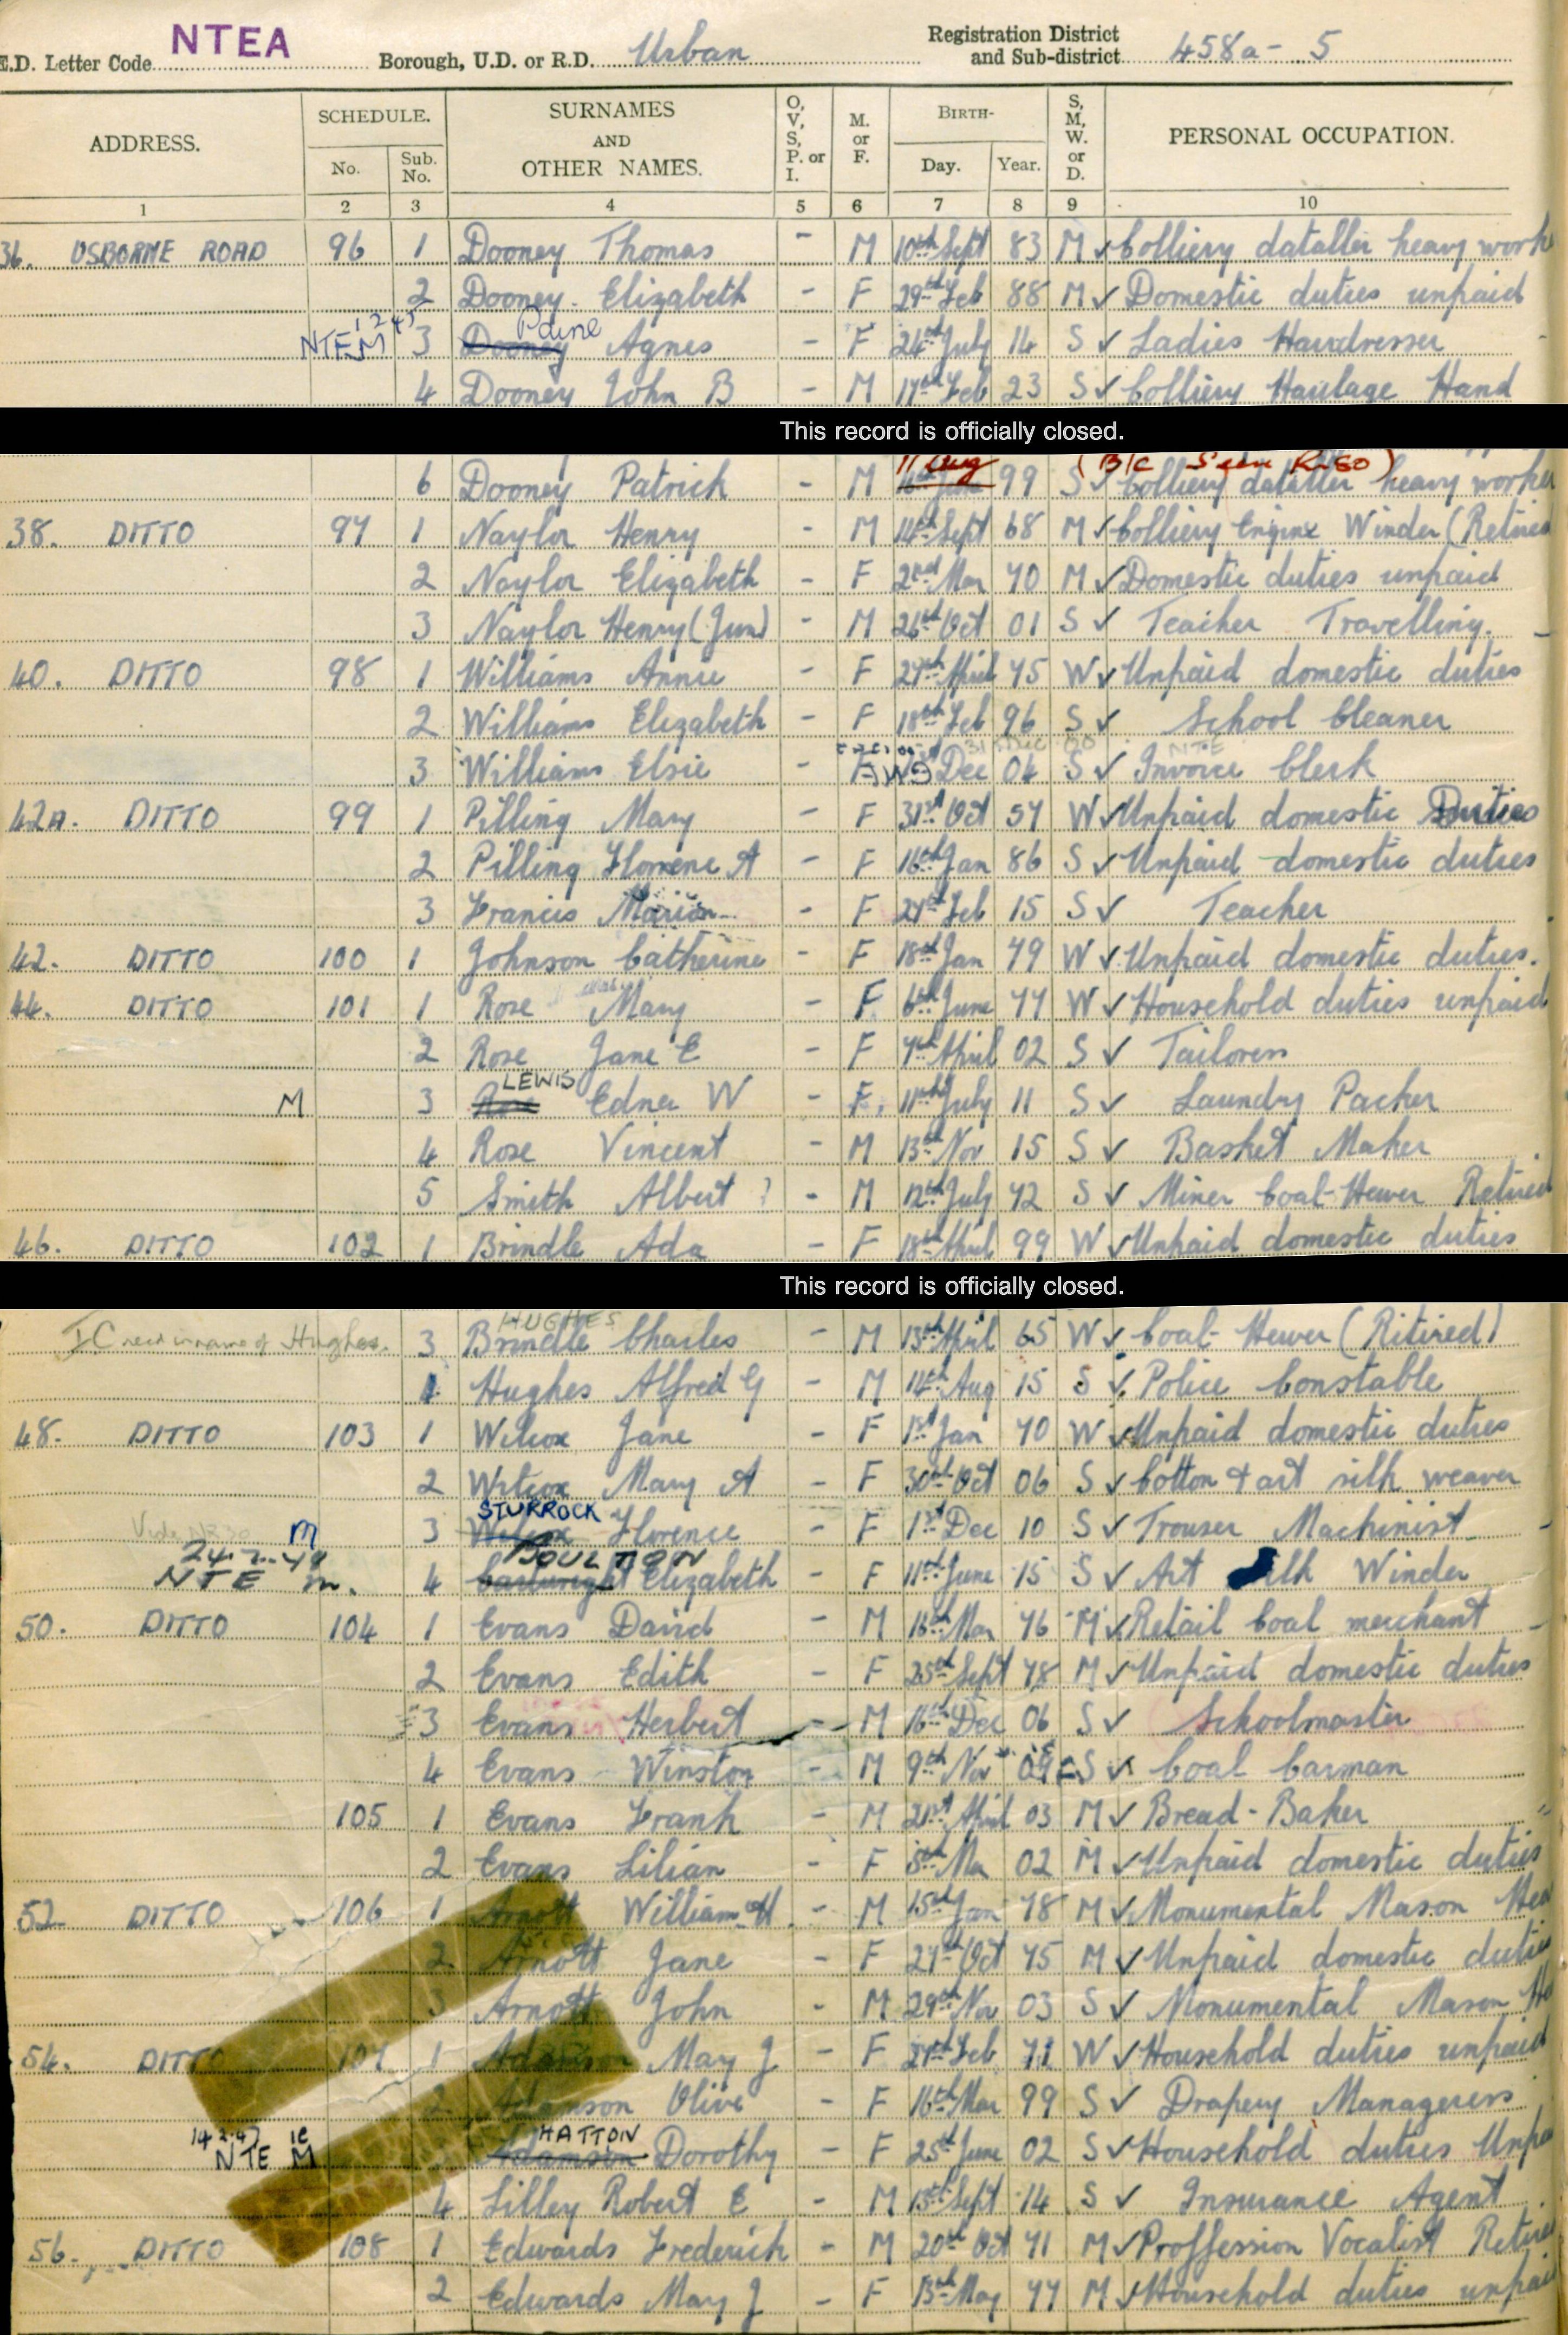 E.D. Letter Code NTEA Borough, U.D. or R.D. Urban Registration District and Sub-district 458a - 5
ADDRESS. SCHEDULE. No. Sub. No. SURNAMES AND OTHER NAMES. O, V, S, P. or I. M. or F. BIRTH- Day. Year. S, M, W. or D. PERSONAL OCCUPATION.
1 2 3 4 5 6 7 8 9 10
36. OSBORNE ROAD 96 1 Dooney Thomas - M 10th Sept 83 M ✓ Colliery dataller heavy worke
2 Dooney Elizabeth - F 29th Feb 88 M ✓ Domestic duties unpaid
Paine
NTEM 3 Dooney Agnes - F 24th July 14 S ✓ Ladies Hairdresser
4 Dooney John B - M 17th Feb 23 S ✓ Colliery Haulage Hand
This record is officially closed.
11 Aug (B/C Seen R.50)
6 Dooney Patrick - M 16th June 99 S ✓ Colliery dataller heavy worke
38. DITTO 97 1 Naylor Henry - M 14th Sept 68 M ✓ Colliery Engine Winder (Retired
2 Naylor Elizabeth - F 2nd Mar 70 M ✓ Domestic duties unpaid
3 Naylor Henry (Jun) - M 26th Oct 01 S ✓ Teacher Travelling.
40. DITTO 98 1 Williams Annie - F 27th April 75 W ✓ Unpaid domestic duties
2 Williams Elizabeth - F 18th Feb 96 S ✓ School Cleaner
31 Dec 00 NTE
3 Williams Elsie - F Dec 04 S ✓ Invoice Clerk
42A. DITTO 99 1 Pilling Mary - F 31st Oct 57 W ✓ Unpaid domestic Duties
2 Pilling Florence A - F 16th Jan 86 S ✓ Unpaid domestic duties
3 Francis Marion - F 27th Feb 15 S ✓ Teacher
42. DITTO 100 1 Johnson Catherine - F 18th Jan 79 W ✓ Unpaid domestic duties.
44. DITTO 101 1 Rose Mary - F 6th June 77 W ✓ Household duties unpaid
2 Rose Jane E - F 7th April 02 S ✓ Tailoress
LEWIS
M 3 Rose Edna W - F. 11th July 11 S ✓ Laundry Packer
4 Rose Vincent - M 13th Nov 15 S ✓ Basket Maker
5 Smith Albert ? - M 12th July 72 S ✓ Miner Coal-Hewer Retired
46. DITTO 102 1 Brindle Ada - F 18th April 99 W ✓ Unpaid domestic duties
This record is officially closed.
HUGHES
IC need in name of Hughes. 3 Brindle Charles - M 13th April 65 W ✓ Coal-Hewer (Ritired)
Hughes Alfred G - M 14th Aug 15 S ✓ Police Constable
48. DITTO 103 1 Wilcox Jane - F 1st Jan 70 W ✓ Unpaid domestic duties
2 Wilcox Mary A - F 30th Oct 06 S ✓ Cotton & art silk weaver
STURROCK
m 3 Wilcox Florence - F 1st Dec 10 S ✓ Trouser Machinist
MOULTON
NTE m. 4 Cartwright Elizabeth - F 11th June 15 S ✓ Art Silk Winder
50. DITTO 104 1 Evans David - M 16th Mar 76 M ✓ Retail Coal merchant
2 Evans Edith - F 25th Sept 78 M ✓ Unpaid domestic duties
3 Evans Herbert - M 16th Dec 06 S ✓ Schoolmaster
4 Evans Winston - M 9th Nov 09 S ✓ Coal Carman
105 1 Evans Frank - M 21st April 03 M ✓ Bread-Baker
2 Evans Lilian - F 5th Ma 02 M ✓ Unpaid domestic duties
52 DITTO 106 1 Arnott William H. - M 15th Jan 78 M ✓ Monumental Mason Hea
2 Arnott Jane - F 27th Oct 75 M ✓ Unpaid domestic duties
3 Arnott John - M 29th Nov 03 S ✓ Monumental Mason He
54. DITTO 107 1 Adamson May J - F 27th Feb 71 W ✓ Household duties unpaid
2 Adamson Olive - F 16th Mar 99 S ✓ Drapery Manageress
HATTON
14.2.47 NTE M Adamson Dorothy - F 25th June 02 S ✓ Household duties Unpa
4 Lilley Robert E - M 15th Sept 14 S ✓ Insurance Agent
56. DITTO 108 1 Edwards Frederick - M 20th Oct 71 M ✓ Proffession Vocalist Retired
2 Edwards Mary J - F 13th May 77 M ✓ Household duties unpai